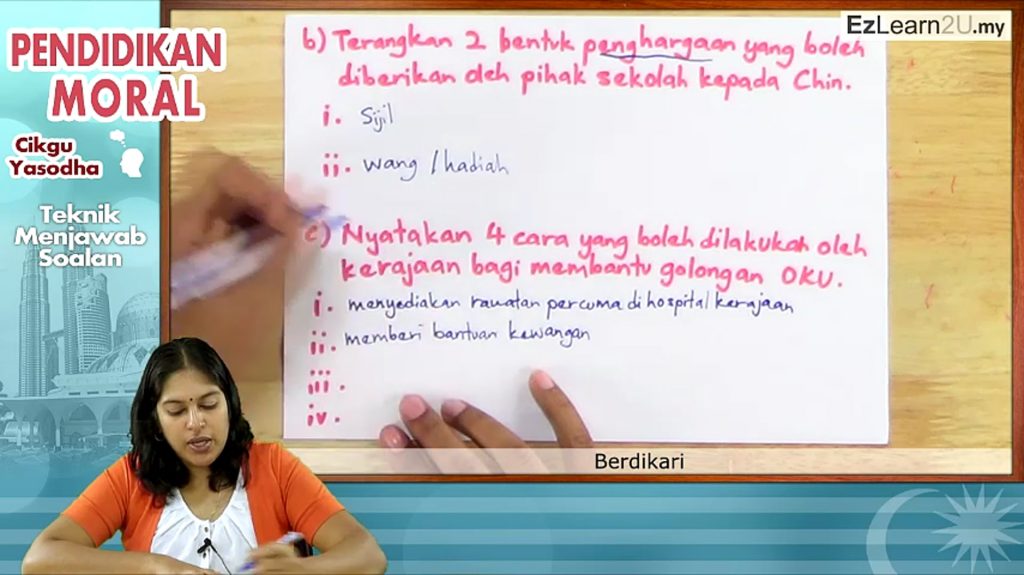 PENDIDIKAN
MORAL
Cikgu
Yasodha
Teknik
Menjawab
Soalan
EzLearn2U.my
b) Terangkan 2 bentuk penghargaan yang boleh
diberikan oleh pihak sekolah kepada Chin.
i. Sijil
ii. wang / hadiah
c) Nyatakan 4 cara yang boleh dilakukan oleh
kerajaan bagi membantu golongan OKU.
i. menyediakan rawatan percuma di hospital kerajaan
ii. memberi bantuan kewangan
iii.
iv.
Berdikari